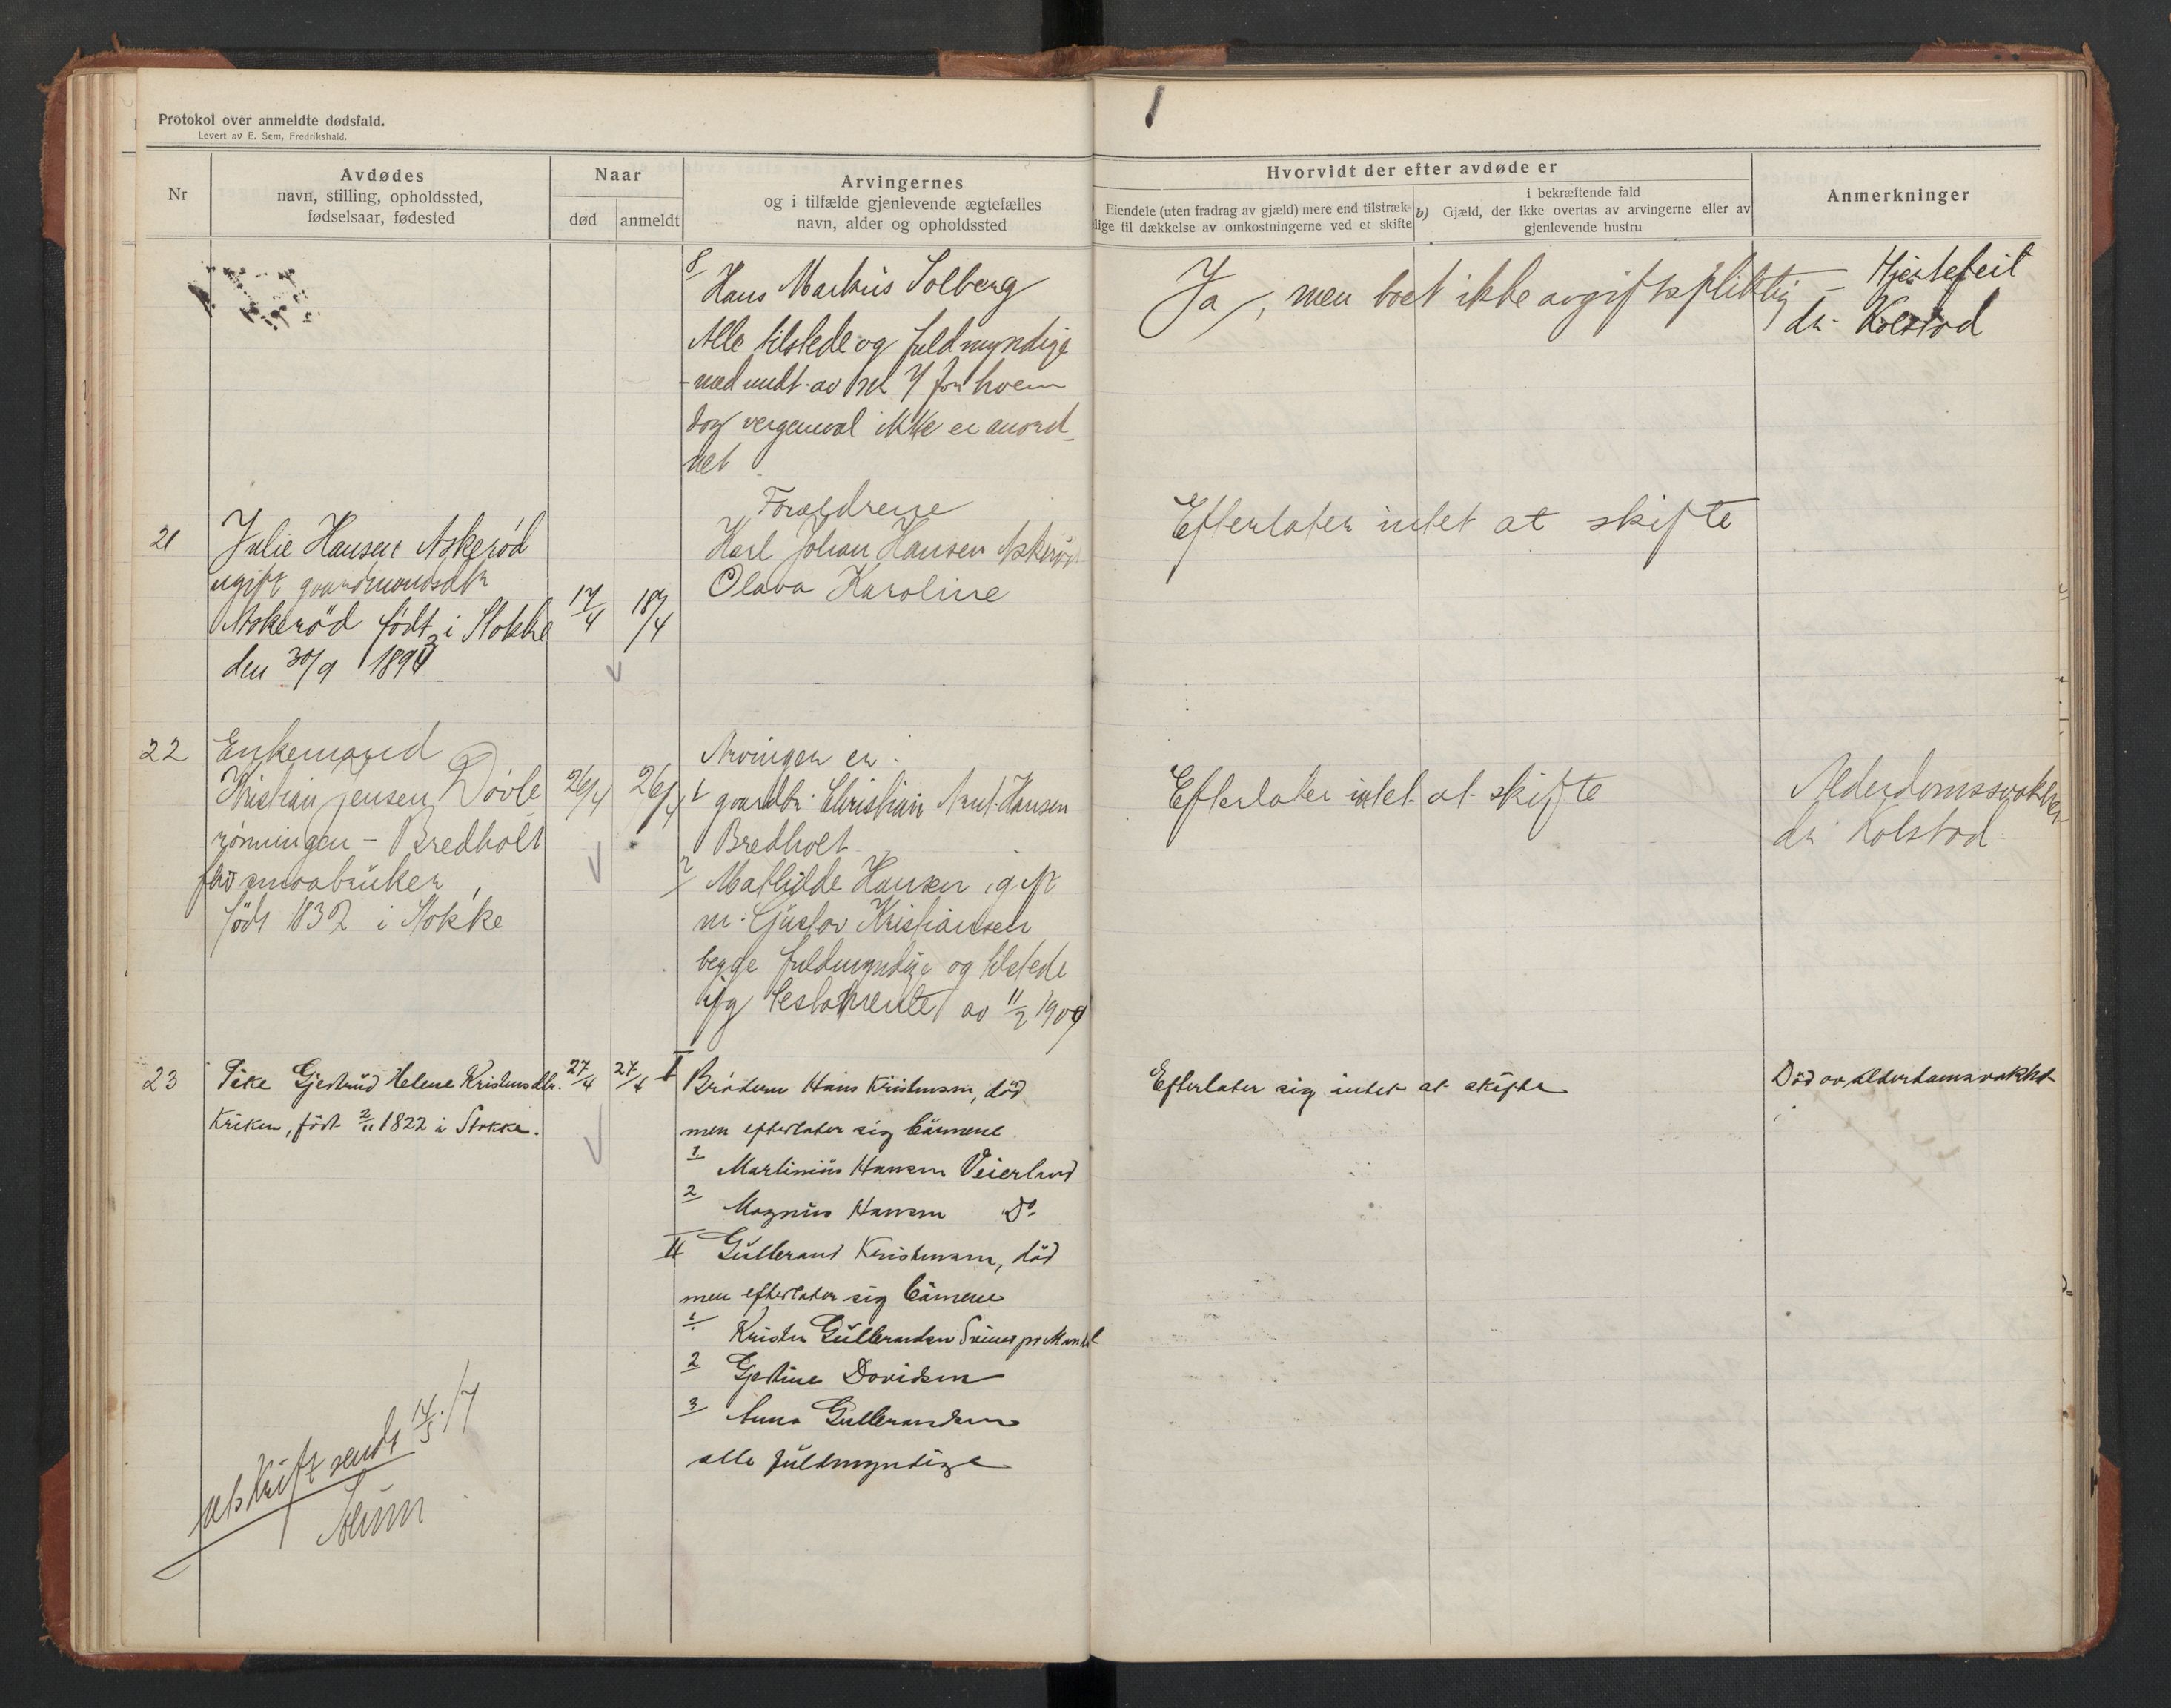 Protokol over anmeldte dødsfald.
Levert av E. Sem, Fredrikshald.
Nr
Avdødes
navn, stilling, opholdssted,
fødselsaar, fødested
Naar
død
anmeldt
Arvingernes
og i tilfælde gjenlevende ægtefælles
navn, alder og opholdssted
Hvorvidt der efter avdøde er
Eiendele (uten fradrag av gjæld) mere end tilstræk-
lige til dækkelse av omkostningerne ved et skifte
i bekræftende fald
b) Gjæld, der ikke overtas av arvingerne eller av
gjenlevende hustru
Anmerkninger
8/
Hans Markus Solberg
Alle tilstede og fuldmyndige
- med undt. av No 7 for hvem
dog vergemaal ikke er anord-
net
Ja, men boet ikke avgiftspliktig -
Hjertefeil
dr. Kolstad
21
Julie Hansen Askerød
ugift gaardmandsdtr
Askerød født i Stokke
den 30/9 189
17/4
18/4
Foreldrene
Karl Johan Hansen Askerød
Olava Karoline
Efterlater intet at skifte
22
Enkemand
Kristian Jensen Døvle
rønningen - Bredholt
fhv smaabruker,
født 1832 i Stokke
26/4
26/4
Arvinger er.
1 gaardbr. Christian Ant. Hansen
Bredholt
2/ Mathilde Hansen, gift
m. Gustav Kristiansen
begge fuldmyndige og tilstede
ifg testamente av 11/2 1909
Efterlater intet at skifte
Alderdomssvakhet
dr. Kolstad
23
Pike Gjertrud Helene Kristensdtr.
Kriken, født 2/11 1822 i Stokke.
27/4
27/4
I Broderen Hans Kristensen, död
men efterlater sig börnene
1 Martinius Hansen Veierland
2 Magnus Hansen Do.
II Gulleraud Kristensen, död
men efterlater sig börnene
1 Kristen Gullerandsen Svinør pr Mandal
2 Gjertine Davidsen
3 Anna Gullerandsen
alle fuldmyndige
Efterlater sig intet at skifte
Död av alderdomsvakhet
Utskrift sendt 14/5.17